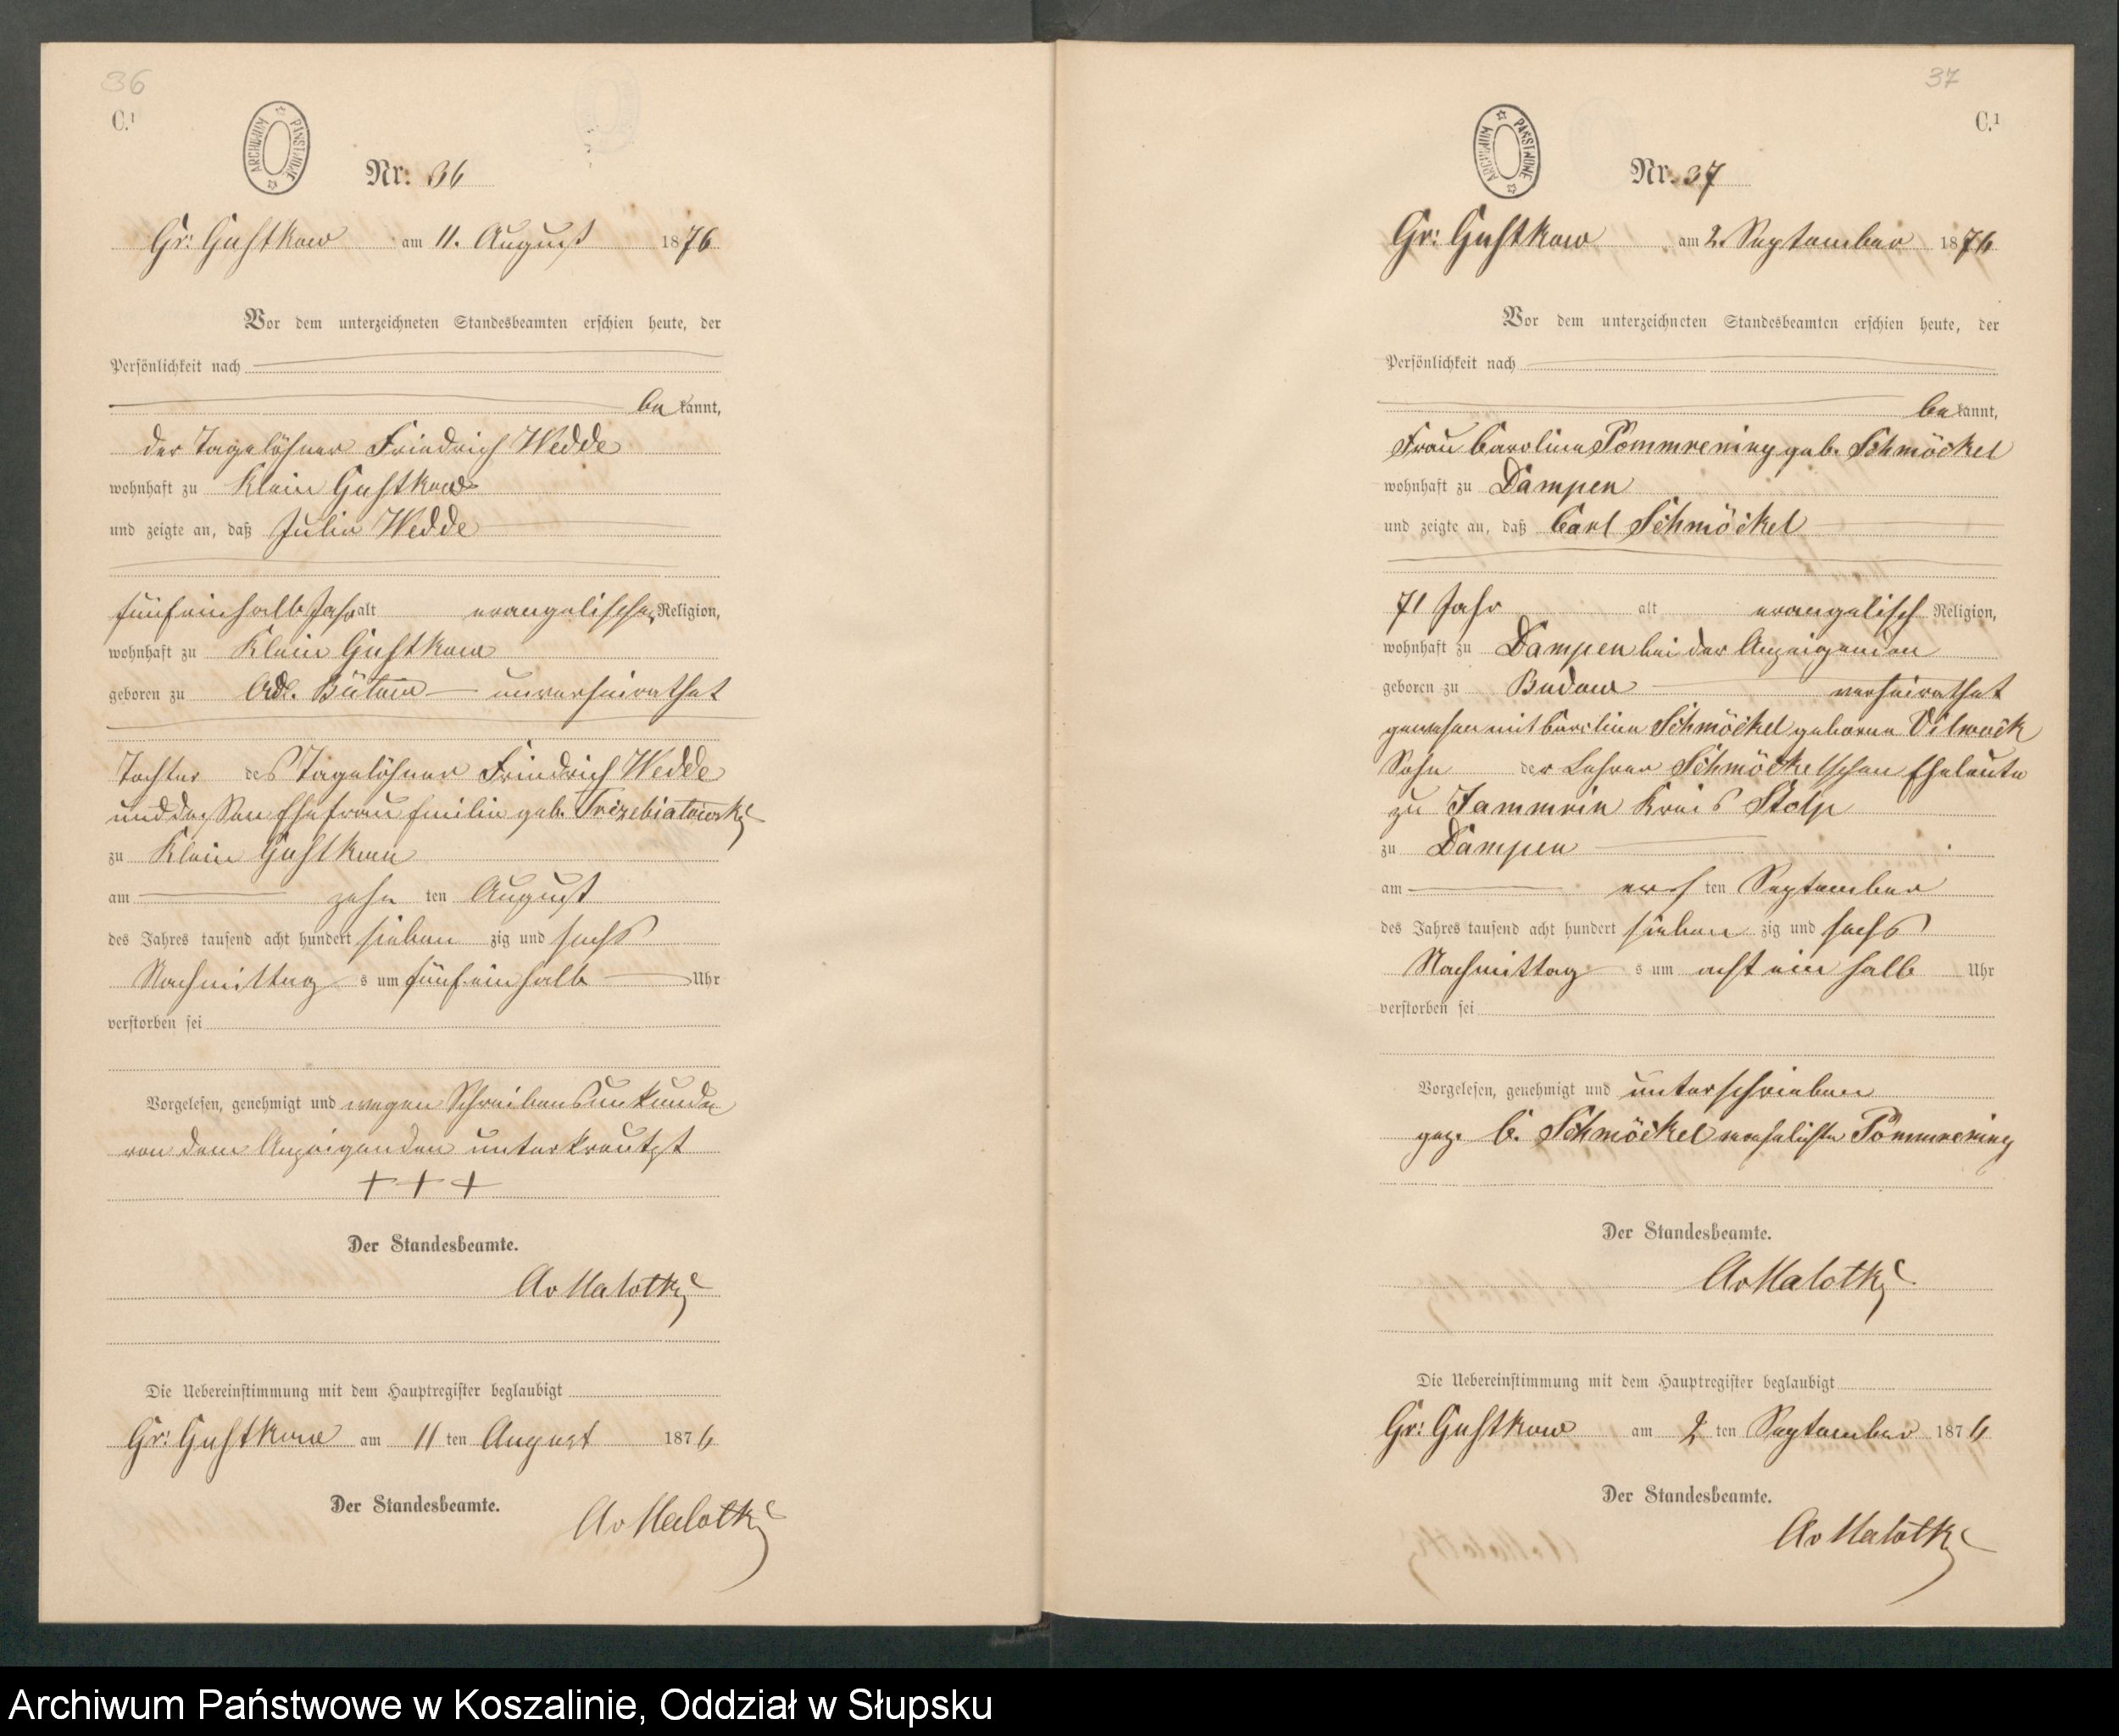 36
C.1
ARCHIWUM PAŃSTWOWE
Nr. 36
Gr: Gustkow am 11. August 1876
Vor dem unterzeichneten Standesbeamten erschien heute, der
Persönlichkeit nach
be kannt,
der Tagelöhner Friedrich Wedde
wohnhaft zu Klein Gustkow
und zeigte an, daß Julie Wedde
fünfeinhalb Jahr alt evangelischer Religion,
wohnhaft zu Klein Gustkow
geboren zu Adl. Bütow unverheirathet
Tochter des Tagelöhner Friedrich Wedde
und dessen Ehefrau Emilie geb. Trzebiatowsky
zu Klein Gustkow
am zehn ten August
des Jahres tausend acht hundert sieben zig und sechs
Nachmittag s um fünfeinhalb Uhr
verstorben sei
Vorgelesen, genehmigt und wegen Schreibensunkunde
von dem Anzeigenden unterkreutzt
+ + +
Der Standesbeamte.
Av Malotky
Die Uebereinstimmung mit dem Hauptregister beglaubigt
Gr: Gustkow am 11 ten August 1876
Der Standesbeamte.
Av Malotky
37
C.1
ARCHIWUM PAŃSTWOWE
Nr. 37
Gr: Gustkow am 2. September 1876
Vor dem unterzeichneten Standesbeamten erschien heute, der
Persönlichkeit nach
be kannt,
Frau Caroline Pommrening geb. Schmöckel
wohnhaft zu Dampen
und zeigte an, daß Carl Schmöckel
71 Jahr alt evangelisch Religion,
wohnhaft zu Dampen bei der Anzeigenden
geboren zu Budow verheirathet
gewesen mit Caroline Schmöckel geborne Vilwock
Sohn der Lehrer Schmöckelschen Eheleute
zu Jammrin Kreis Stolp
zu Dampen
am ers ten September
des Jahres tausend acht hundert sieben zig und sechs
Nachmittag s um acht ein halb Uhr
verstorben sei
Vorgelesen, genehmigt und unterschrieben
gez. C. Schmöckel verehelichte Pommrening
Der Standesbeamte.
Av Malotky
Die Uebereinstimmung mit dem Hauptregister beglaubigt
Gr: Gustkow am 2 ten September 1876
Der Standesbeamte.
Av Malotky
Archiwum Państwowe w Koszalinie, Oddział w Słupsku